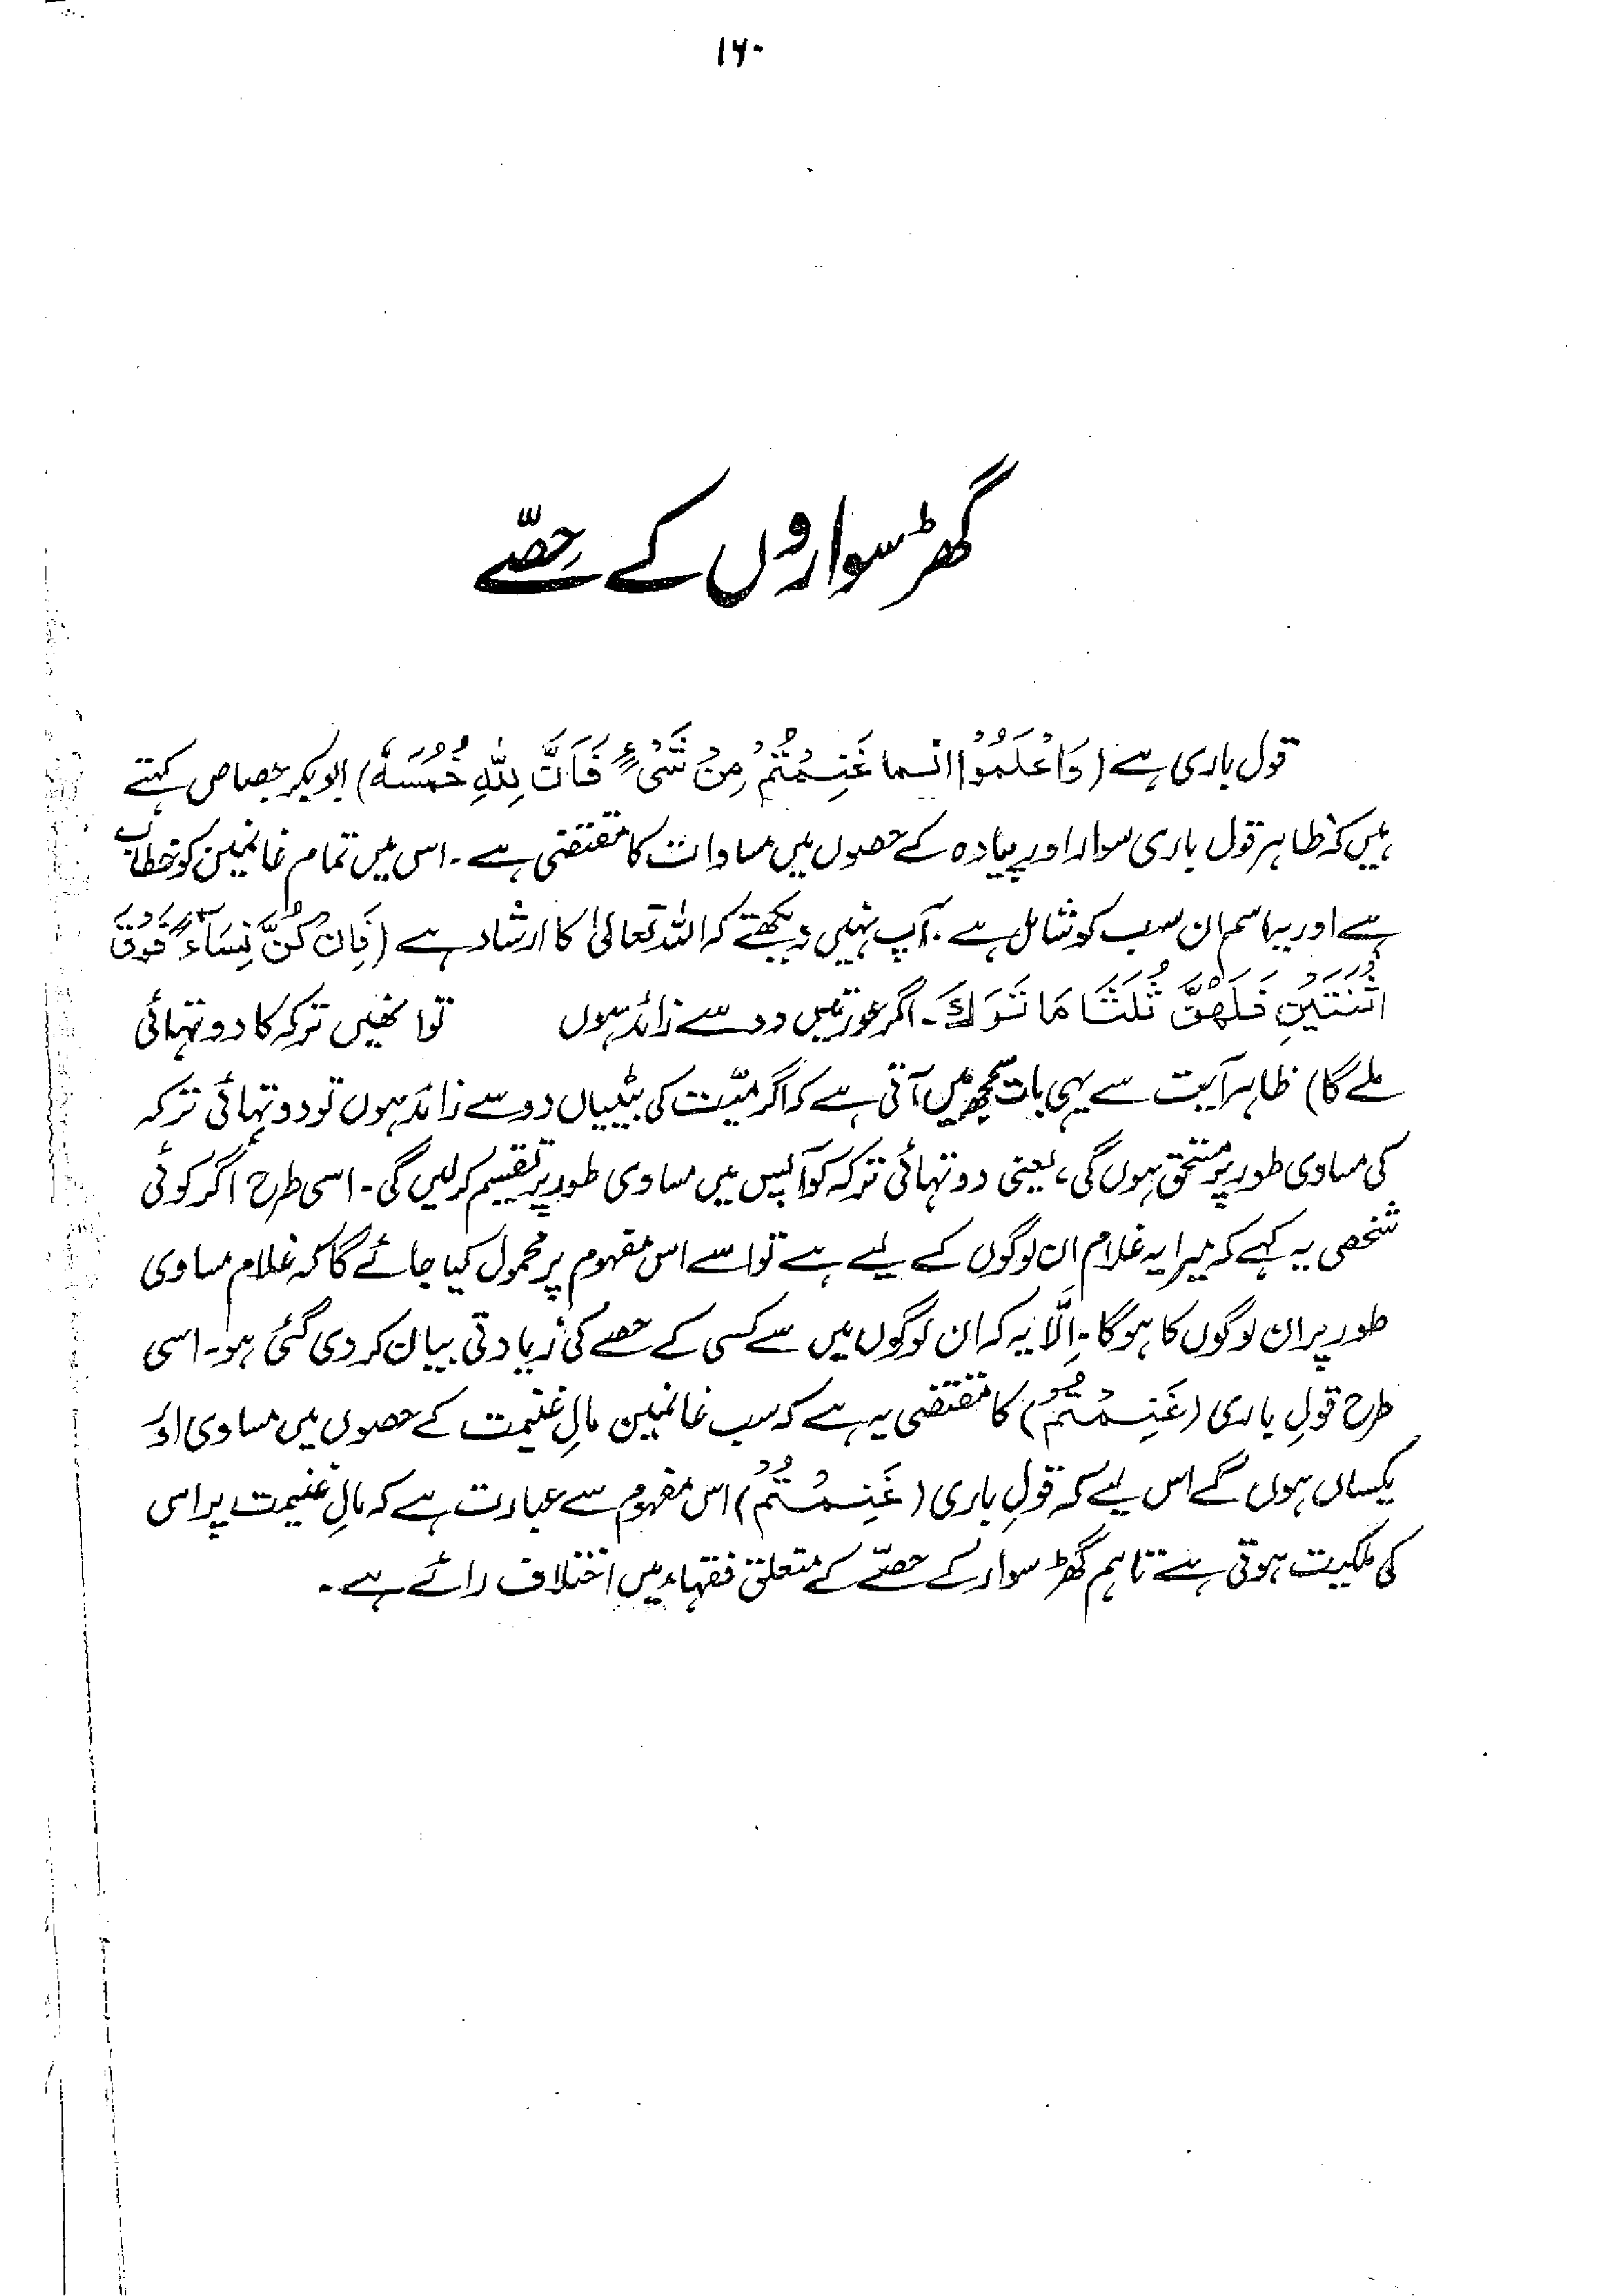 ۱۶۰
گھڑ سواروں کے حصّے
قول باری ہے (وَاعْلَمُوْا انما غَنِمْتُمْ مِنْ شَیْءٍ فَاَنَّ لِلّٰهِ خُمُسَهٗ) ابوبکر جصاص کہتے
ہیں کہ ظاہر قول باری سوار اور پیادہ کے حصوں میں مساوات کا مقتضی ہے۔ اس میں تمام غانمین کو خطاب
ہے اور یہ اسم ان سب کو شامل ہے۔ آپ نہیں دیکھتے کہ اللہ تعالیٰ کا ارشاد ہے (فَاِنْ كُنَّ نِسَآءً فَوْقَ
اثْنَتَيْنِ فَلَهُنَّ ثُلُثَا مَا تَرَكَ۔ اگر عورتیں دو سے زائد ہوں توا نھیں ترکہ کا دو تہائی
ملے گا) ظاہر آیت سے یہی بات سمجھ میں آتی ہے کہ اگر میّت کی بیٹیاں دو سے زائد ہوں تو دو تہائی ترکہ
کی مساوی طور پر مستحق ہوں گی، یعنی دو تہائی ترکہ کو آپس میں مساوی طور پر تقسیم کرلیں گی۔ اسی طرح اگر کوئی
شخص یہ کہے کہ میرا یہ غلام ان لوگوں کے لیے ہے تو اسے اس مفہوم پر محمول کیا جائے گا کہ غلام مساوی
طور پر ان لوگوں کا ہوگا۔ اِلَّا یہ کہ ان لوگوں میں سے کسی کے حصے کی زیادتی بیان کر دی گئی ہو۔ اسی
طرح قولِ باری (غَنِمْتُمْ) کا مقتضی یہ ہے کہ سب غانمین مالِ غنیمت کے حصوں میں مساوی اور
یکساں ہوں گے اس لیے کہ قولِ باری (غَنِمْتُمْ) اس مفہوم سے عبارت ہے کہ مالِ غنیمت پر اس
کی ملکیت ہوتی ہے تاہم گھڑ سوار کے حصّے کے متعلق فقہاء میں اختلاف رائے ہے۔